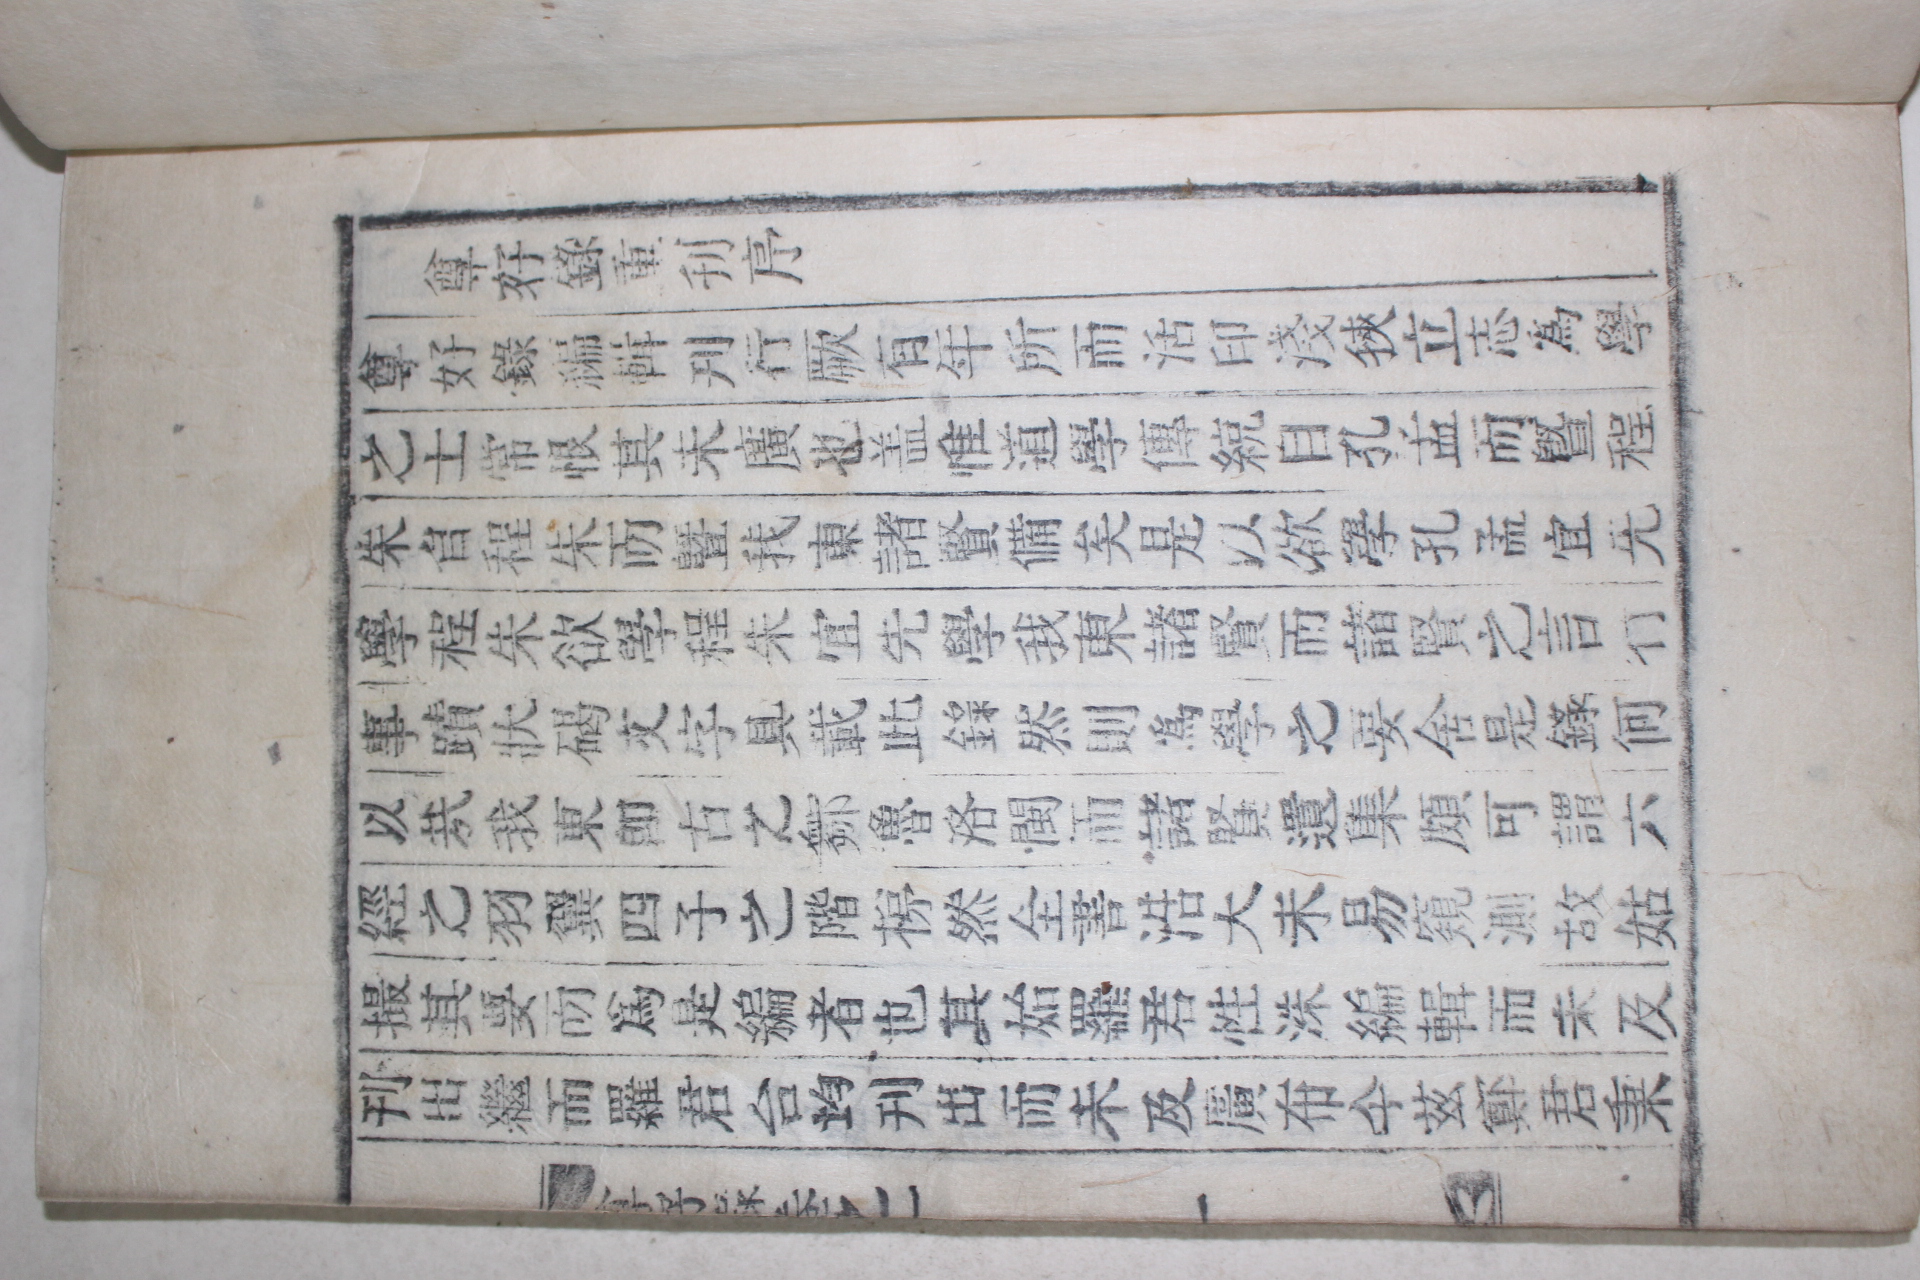 尊好錄重刊序
尊好錄編輯刊行厥有年所而活印淺狹立志爲學
之士常恨其未廣也盖惟道學傳統自孔孟而曁程
朱自程朱而曁我東諸賢備矣是以欲學孔孟宜先
學程朱欲學程朱宜先學我東諸賢而諸賢之言行
事蹟狀碣文字具載此錄然則爲學之要舍是錄何
以哉我東卽古之鄒魯洛閩而諸賢遺集頗可謂六
經之羽翼四子之階梯然全書浩大未易窺測故姑
撮其要而爲是編者也其始羅君性洙編輯而未及
刊出繼而羅君台均刊出而未及廣布今玆鄭君秉
一